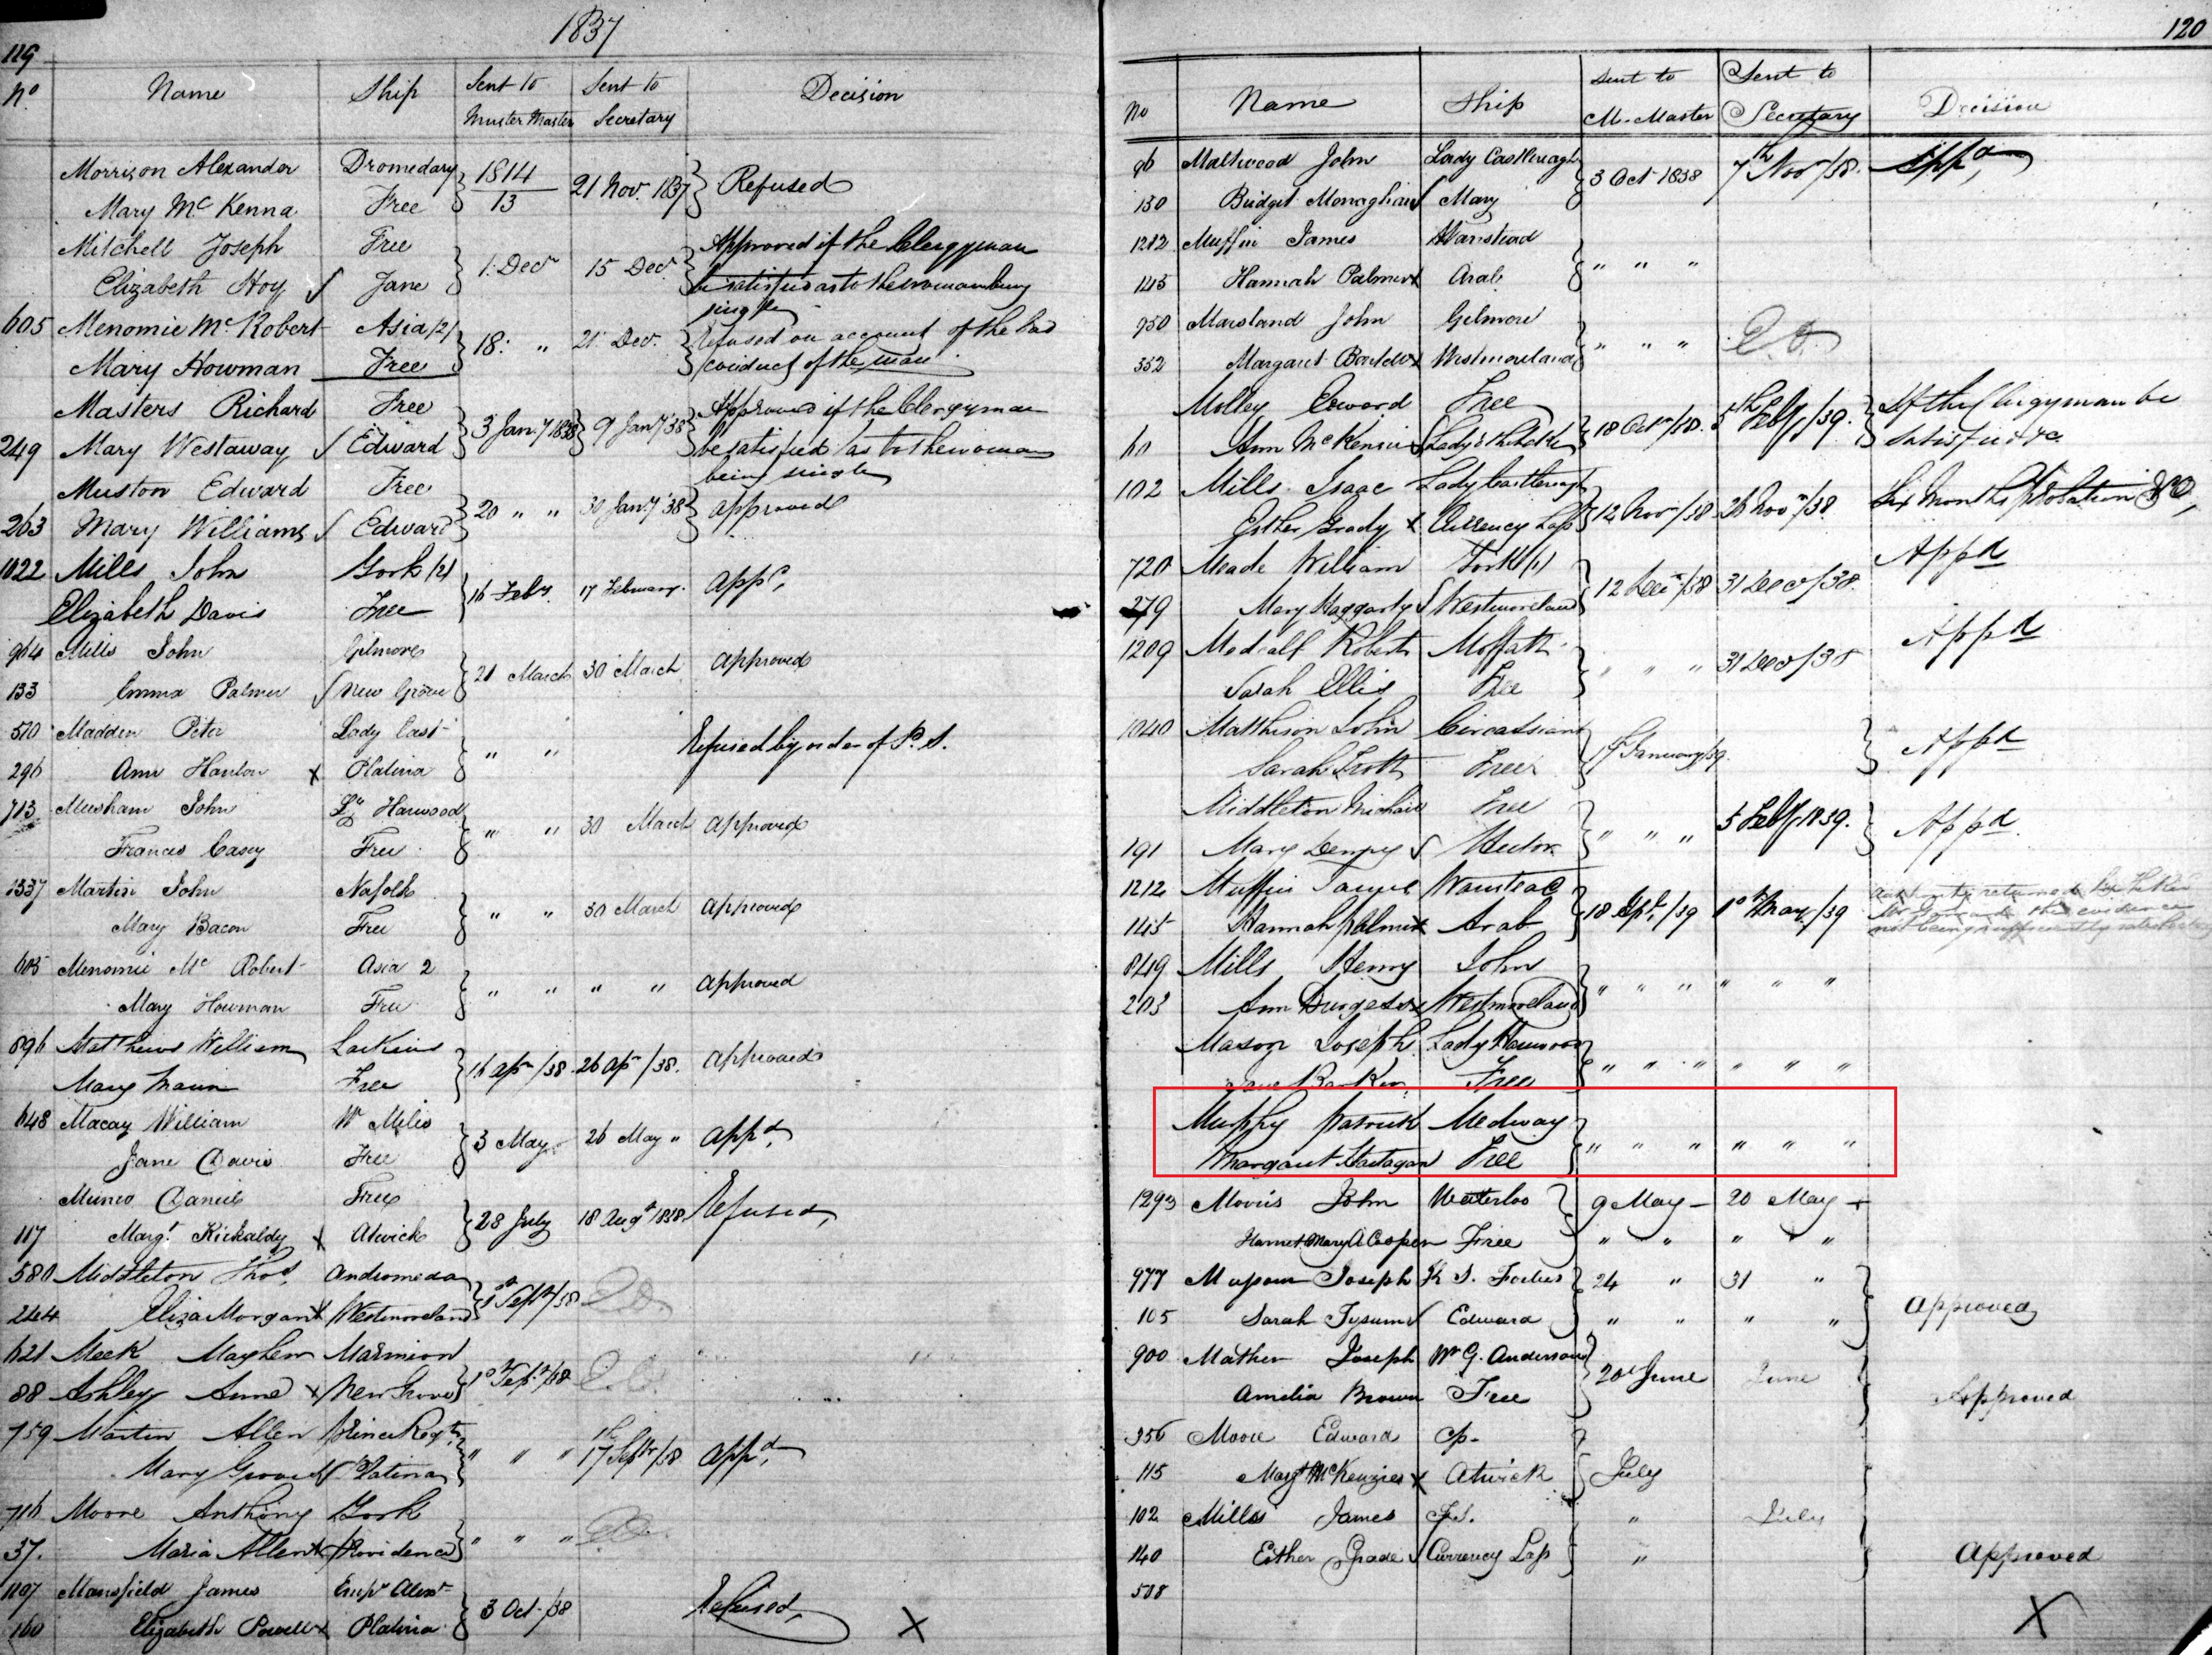 1837
119
Nº Name Ship Sent to Muster Master Sent to Secretary Decision
Morrison Alexander Dromedary 1814 21 Nov. 1837 Refused
Mary Mc Kenna Free 13
Mitchell Joseph Free 1. Decr 15 Decr Approved if the Clergyman
Elizabeth Hoy Jane be satisfied as to the woman being
single
605 Menomie Mc Robert Asia (2) 18. " 21 Decr. Refused on account of the bad
Mary Howman Free conduct of the man
Masters Richard Free 3 Jany 1838 9 Jany/38 Approved if the Clergyman
249 Mary Westaway Edward be satisfied as to the woman
being single
Muston Edward Free 20 " " 30 Jany/38 approved
263 Mary Williams Edward
1022 Mills John York (2) 16 Feby. 17 February. appd,
Elizabeth Davis Free
964 Mills John Gilmore 21 March 30 March approved
133 Emma Palmer New Grove
570 Madden Peter Lady Cast- " " Refused by order of P. S.
296 Ann Hanlon x Platina
713 John Ly Harwood " " 30 March approved
Frances Casey Free
1337 Martin John Nofolk " " 30 March approved
Mary Bacon Free
605 Menomie Mc Robert Asia 2 " " " " approved
Mary Howman Free
896 Matthews William Larkins 16 apr /38 26 apr /38. approved
Mary Free
648 Macay William Wm Miles 3 May 26 May " appd,
Jane Davis Free
Munro Daniel Free 28 July 18 Augt 1838 Refused,
117 Margt. Kirkaldy x Atwick
580 Middleton Thos, Andromeda 1 Sept/38
244 Eliza Morgan x Westmoreland
621 Meek Mayhew Marmion 10 Sept/38
88 Ashley Anne x New Grove
759 Martin Allen Prince Regt. " " " 17 Sept/38 appd,
Mary Platina
716 Moore Anthony York " " "
37. Maria Allen x Providence
1107 Mansfield James Empr Alexr 3 Oct /38 Refused,
160 Elizabeth Powell x Platina x
120
No Name Ship Sent to M. Master Sent to Secretary Decision
96 Maltwood John Lady Castlereagh 3 Oct 1838 7th Nov/38. Appd,
130 Bridget Monaghan Mary
1212 Muffin James Wanstead " " "
145 Hannah Palmer x Arab
950 Marsland John Gilmore " " "
352 Margaret x Westmoreland
Molley Edward Free 18 Octr/38. 5th Feby/39. If the Clergyman be
60 Ann McKenzie satisfied &c
102 Mills Isaac Lady Castlereagh 12 Novr/38 26 Novr/38 Six Months probation &c,
Esther Grady x Currency Lass
720 Meade William York (1) 12 Decr/38 31 Decr/38. Appd
279 Mary Haggarty Westmoreland
1209 Medcalf Robert Moffatt " " " 31 Decr/38 Appd
Sarah Ellis Free
1040 Matthison John Circassian January/39. Appd
Sarah Trott Free
Middleton Michael Free " " " 5 Feby 1839. Appd
191 Mary Dempsy Hector
1212 Muffin James Wanstead 18 Apl. /39 1 May /39
145 Hannah Palmer x Arab
849 Mills Henry John " " " " " "
203 Ann Burgess x Westmoreland
Mason Joseph Lady Harwood " " " " " "
Jane Barker Free
Murphy Patrick Medway " " " " " "
Margaret Hartagan Free
1293 Morris John Waterloo 9 May - 20 May
Harriet Mary A Cooper Free " " " "
977 Joseph K. S. Forbes 24 " 31 "
105 Sarah Tysum Edward " " " " Approved
900 Mather Joseph Wm G. Anderson 20 June June
Amelia Brown Free Approved
356 Moore Edward
115 Margt McKenzie x Atwick July
102 Mills James F.S. " July
140 Esther Grade Currency Lass " Approved
508
X